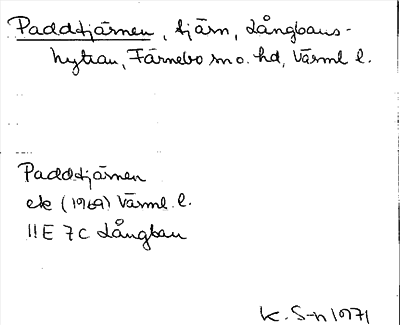 Paddtjärnen, tjärn, Långbans-
hyttan, Färnebo sn o. hd, Värml l.
Paddtjärnen
ek (1969) Värml. l.
11E 7c Långban
K. S-n 1971